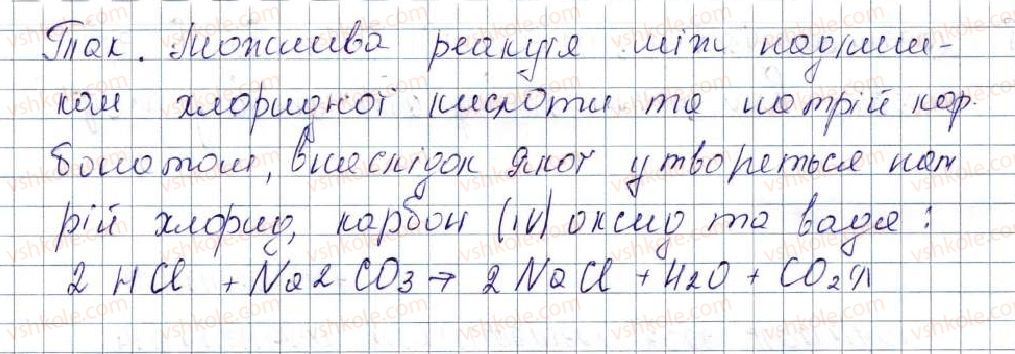 Так. Можлива реакція між надлиш-
ком хлоридної кислоти та натрій кар-
бонатом, внаслідок якої утвориться нат
рій хлорид, карбон (IV) оксид та вода:
2 HCl + Na2CO3 → 2 NaCl + H2O + CO2↑